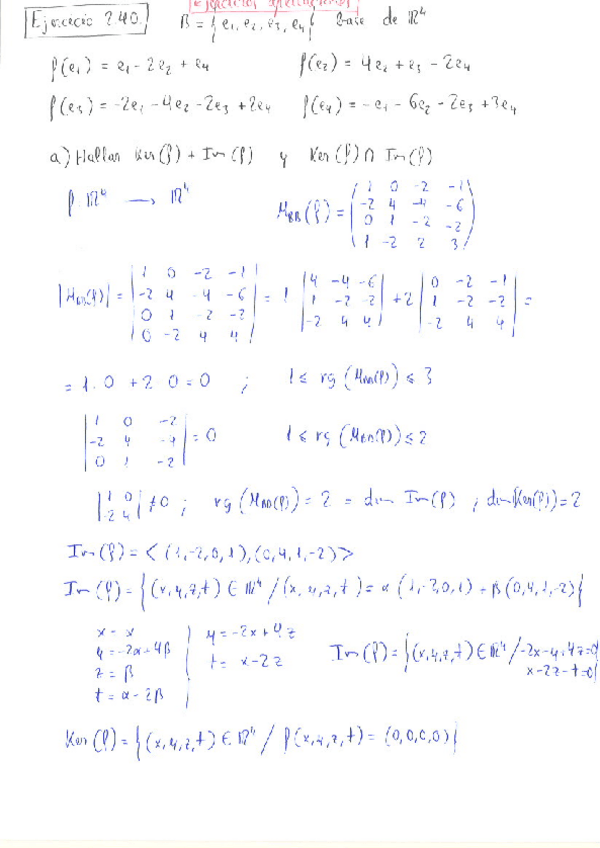 Ejercicios
Ejercicio 2.40. B = {e₁, e₂, e₃, e₄} base de ℝ⁴
f(e₁) = e₁ - 2e₂ + e₄ f(e₂) = 4e₂ + e₃ - 2e₄
f(e₃) = -2e₁ - 4e₂ - 2e₃ + 2e₄ f(e₄) = -e₁ - 6e₂ - 2e₃ + 3e₄
a) Hallar Ker(f) + Im(f) y Ker(f) ∩ Im(f)
f: ℝ⁴ → ℝ⁴
M_BB(f) =
1 0 -2 -1
-2 4 -4 -6
0 1 -2 -2
1 -2 2 3
|M_BB(f)| = | 1 0 -2 -1 | = 1 | 4 -4 -6 | + 2 | 0 -2 -1 | =
| -2 4 -4 -6 | | 1 -2 -2 | | 1 -2 -2 |
| 0 1 -2 -2 | | -2 4 4 | | -2 4 4 |
| 0 -2 4 4 |
= 1·0 + 2·0 = 0 ; 1 ≤ rg(M_BB(f)) ≤ 3
| 1 0 -2 |
| -2 4 -4 | = 0 1 ≤ rg(M_BB(f)) ≤ 2
| 0 1 -2 |
| 1 0 |
| -2 4 | ≠ 0 ; rg(M_BB(f)) = 2 = dim Im(f) ; dim Ker(f) = 2
Im(f) = <(1,-2,0,1),(0,4,1,-2)>
Im(f) = {(x,y,z,t) ∈ ℝ⁴ / (x,y,z,t) = α(1,-2,0,1) + β(0,4,1,-2)}
x = α | y = -2x + 4z
y = -2α + 4β | t = x - 2z Im(f) = {(x,y,z,t) ∈ ℝ⁴ / -2x - y + 4z = 0
z = β x - 2z - t = 0}
t = α - 2β
Ker(f) = {(x,y,z,t) ∈ ℝ⁴ / f(x,y,z,t) = (0,0,0,0)}